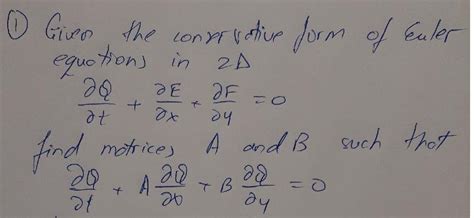 ① Given the conservative form of Euler
equations in 2D
∂Q/∂t + ∂E/∂x + ∂F/∂y = 0
find matrices A and B such that
∂Q/∂t + A ∂Q/∂x + B ∂Q/∂y = 0